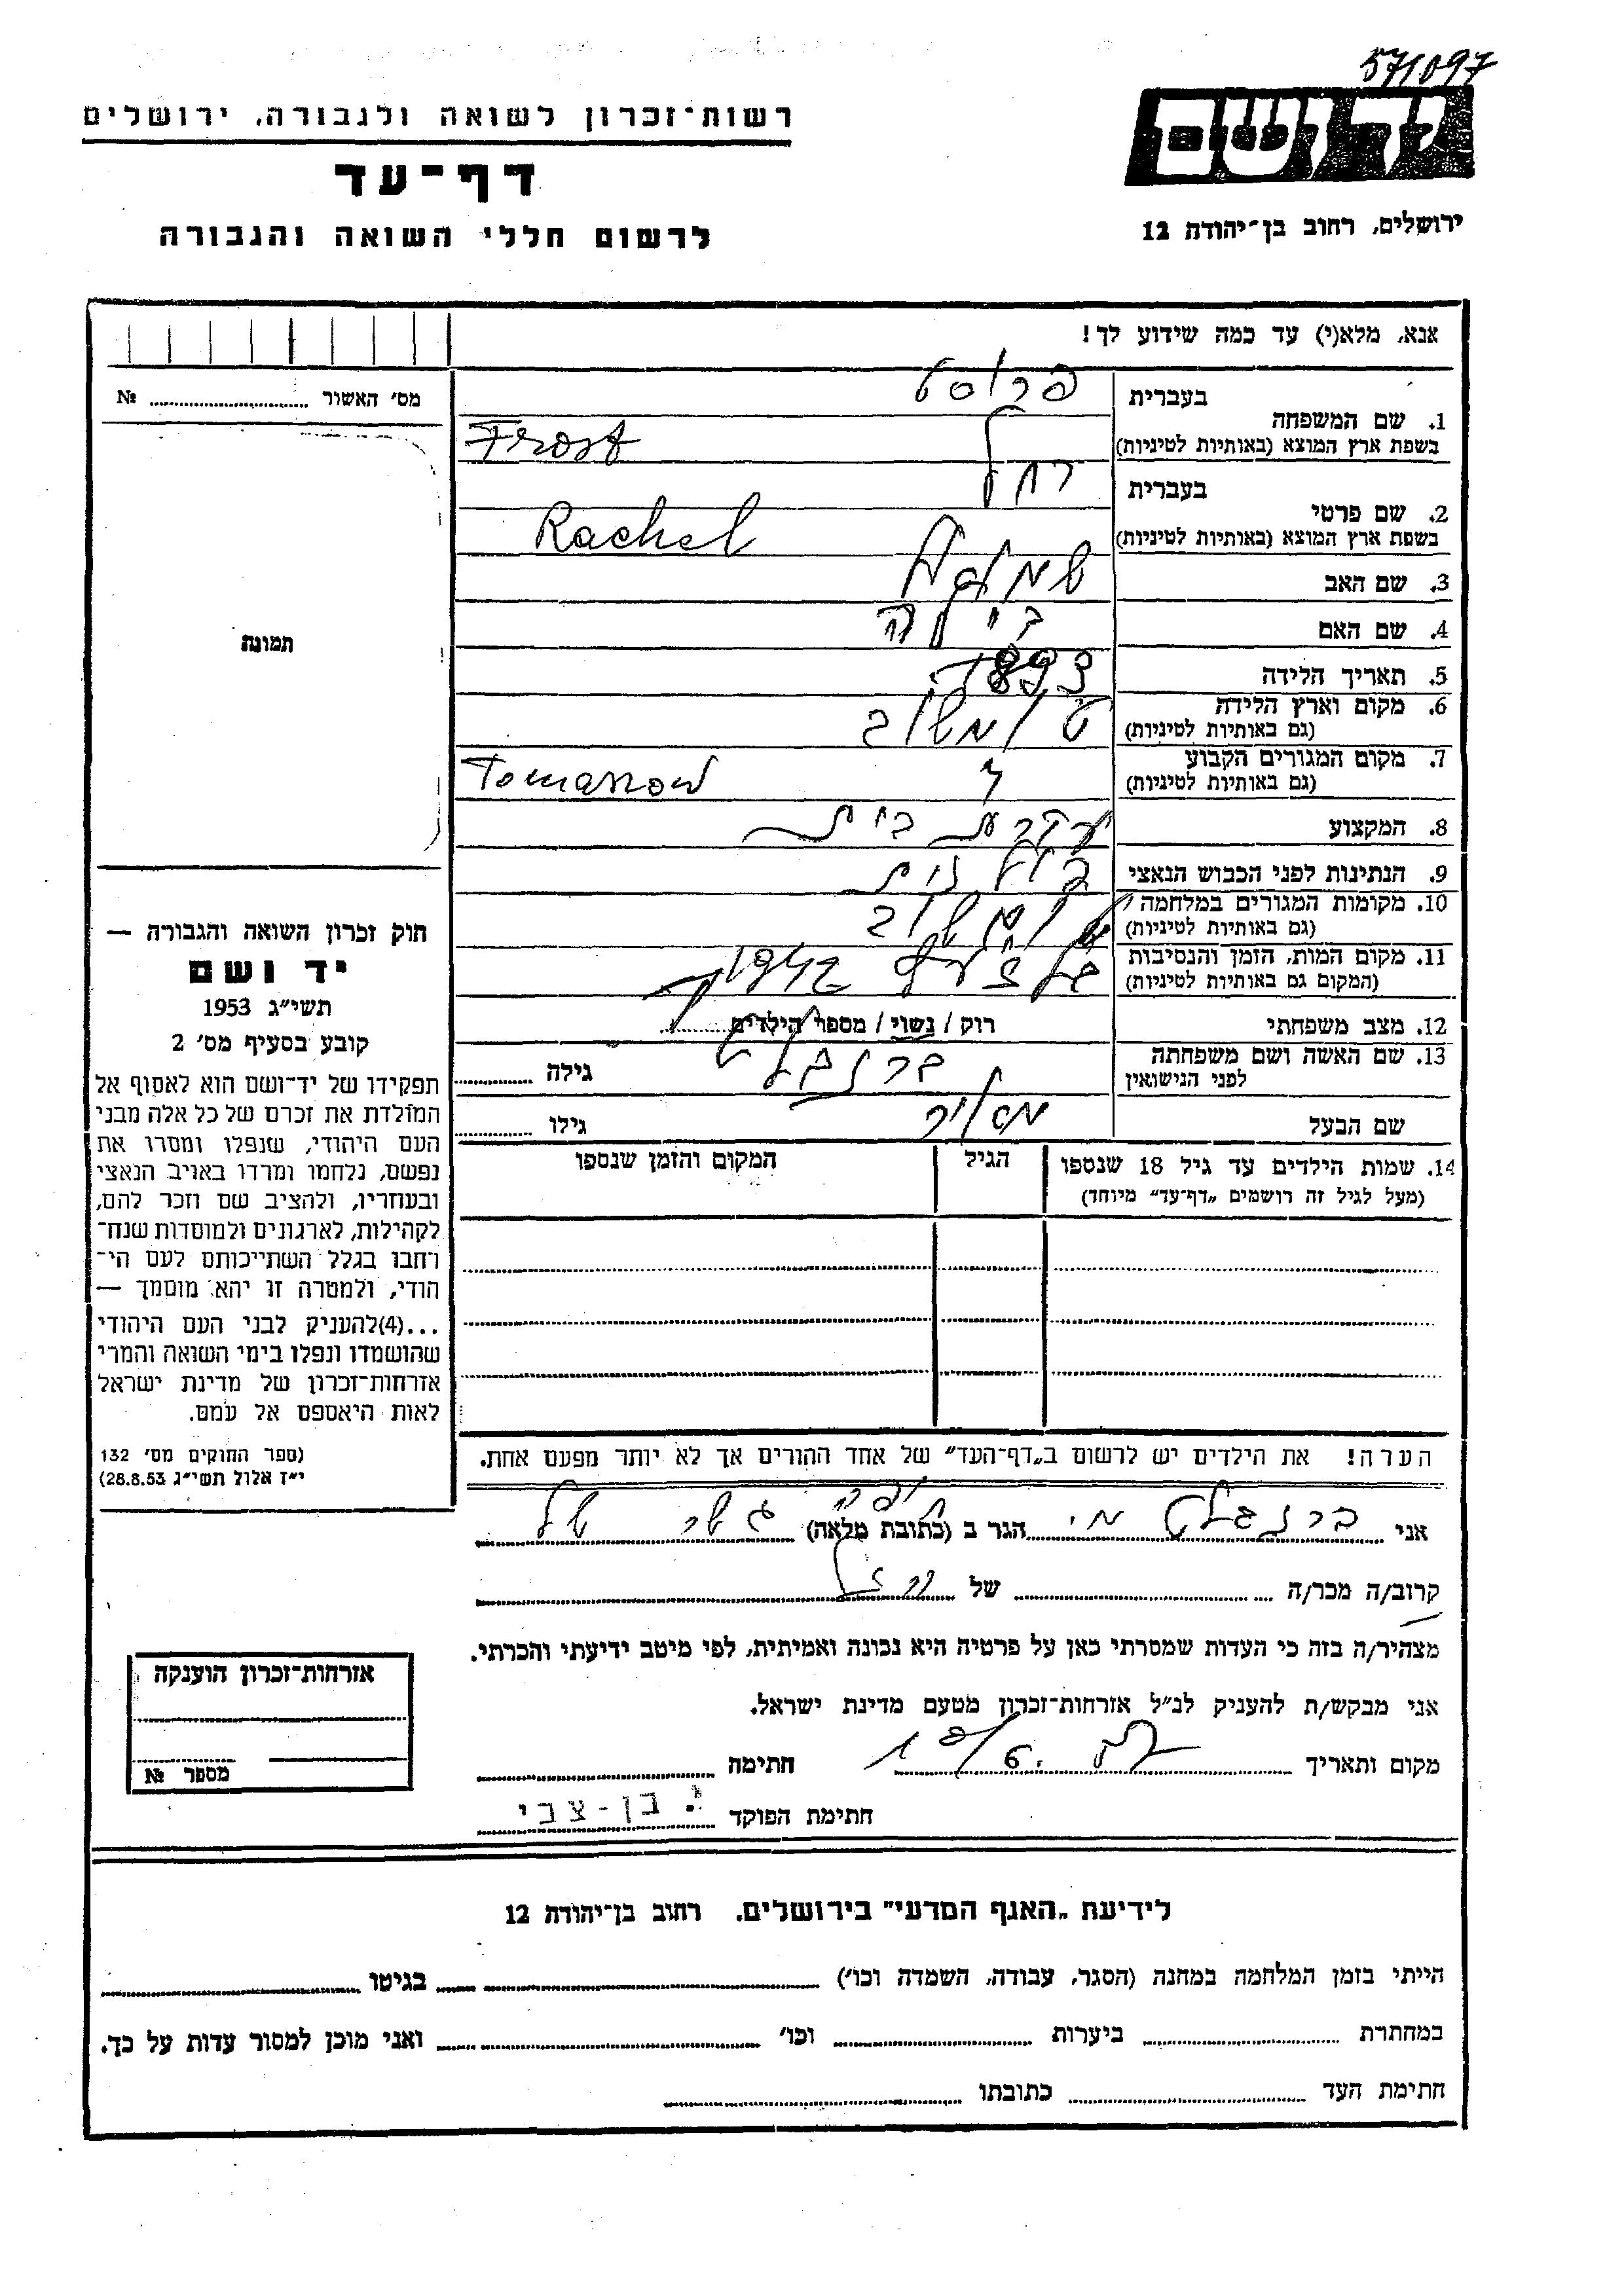 571097
יד ושם
ירושלים, רחוב בן־יהודה 12
רשות־זכרון לשואה ולגבורה, ירושלים
דף־עד
לרשום חללי השואה והגבורה
אנא, מלא(י) עד כמה שידוע לך!
1. שם המשפחה בעברית פרוסט
בשפת ארץ המוצא (באותיות לטיניות) Frost
2. שם פרטי בעברית רחל
בשפת ארץ המוצא (באותיות לטיניות) Rachel
3. שם האב שמואל
4. שם האם בילה
5. תאריך הלידה 1893
6. מקום וארץ הלידה טומשוב
(גם באותיות לטיניות)
7. מקום המגורים הקבוע
(גם באותיות לטיניות) Tomaszow
8. המקצוע עקרת בית
9. הנתינות לפני הכבוש הנאצי פולנית
10. מקומות המגורים במלחמה טומשוב
(גם באותיות לטיניות)
11. מקום המות, הזמן והנסיבות בלזץ 1942
(המקום גם באותיות לטיניות)
12. מצב משפחתי רוק / נשוי / מספר הילדים
13. שם האשה ושם משפחתה
לפני הנישואין ברנבלט גילה
שם הבעל מאיר גילו
14. שמות הילדים עד גיל 18 שנספו הגיל המקום והזמן שנספו
(מעל לגיל זה רושמים „דף־עד” מיוחד)
הערה! את הילדים יש לרשום ב„דף־העד” של אחד ההורים אך לא יותר מפעם אחת.
אני ברנבלט הגר ב (כתובת מלאה) חיפה
קרוב/ה מכר/ה של
מצהיר/ה בזה כי העדות שמסרתי כאן על פרטיה היא נכונה ואמיתית, לפי מיטב ידיעתי והכרתי.
אני מבקש/ת להעניק לנ״ל אזרחות־זכרון מטעם מדינת ישראל.
מקום ותאריך חתימה
חתימת הפוקד י. בן-צבי
מס׳ האשור №
תמונה
חוק זכרון השואה והגבורה —
יד ושם
תשי״ג 1953
קובע בסעיף מס׳ 2
תפקידו של יד־ושם הוא לאסוף אל
המולדת את זכרם של כל אלה מבני
העם היהודי, שנפלו ומסרו את
נפשם, נלחמו ומרדו באויב הנאצי
ובעוזריו, ולהציב שם וזכר להם,
לקהילות, לארגונים ולמוסדות שנח־
רבו בגלל השתייכותם לעם הי־
הודי, ולמטרה זו יהא מוסמך —
...(4)להעניק לבני העם היהודי
שהושמדו ונפלו בימי השואה והמרי
אזרחות־זכרון של מדינת ישראל
לאות היאספם אל עמם.
(ספר החוקים מס׳ 132
י״ז אלול תשי״ג 28.8.53)
אזרחות־זכרון הוענקה
מספר №
לידיעת „האגף המדעי” בירושלים. רחוב בן־יהודה 12
הייתי בזמן המלחמה במחנה (הסגר, עבודה, השמדה וכו׳) בגיטו
במחתרת ביערות וכו׳ ואני מוכן למסור עדות על כך.
חתימת העד כתובתו